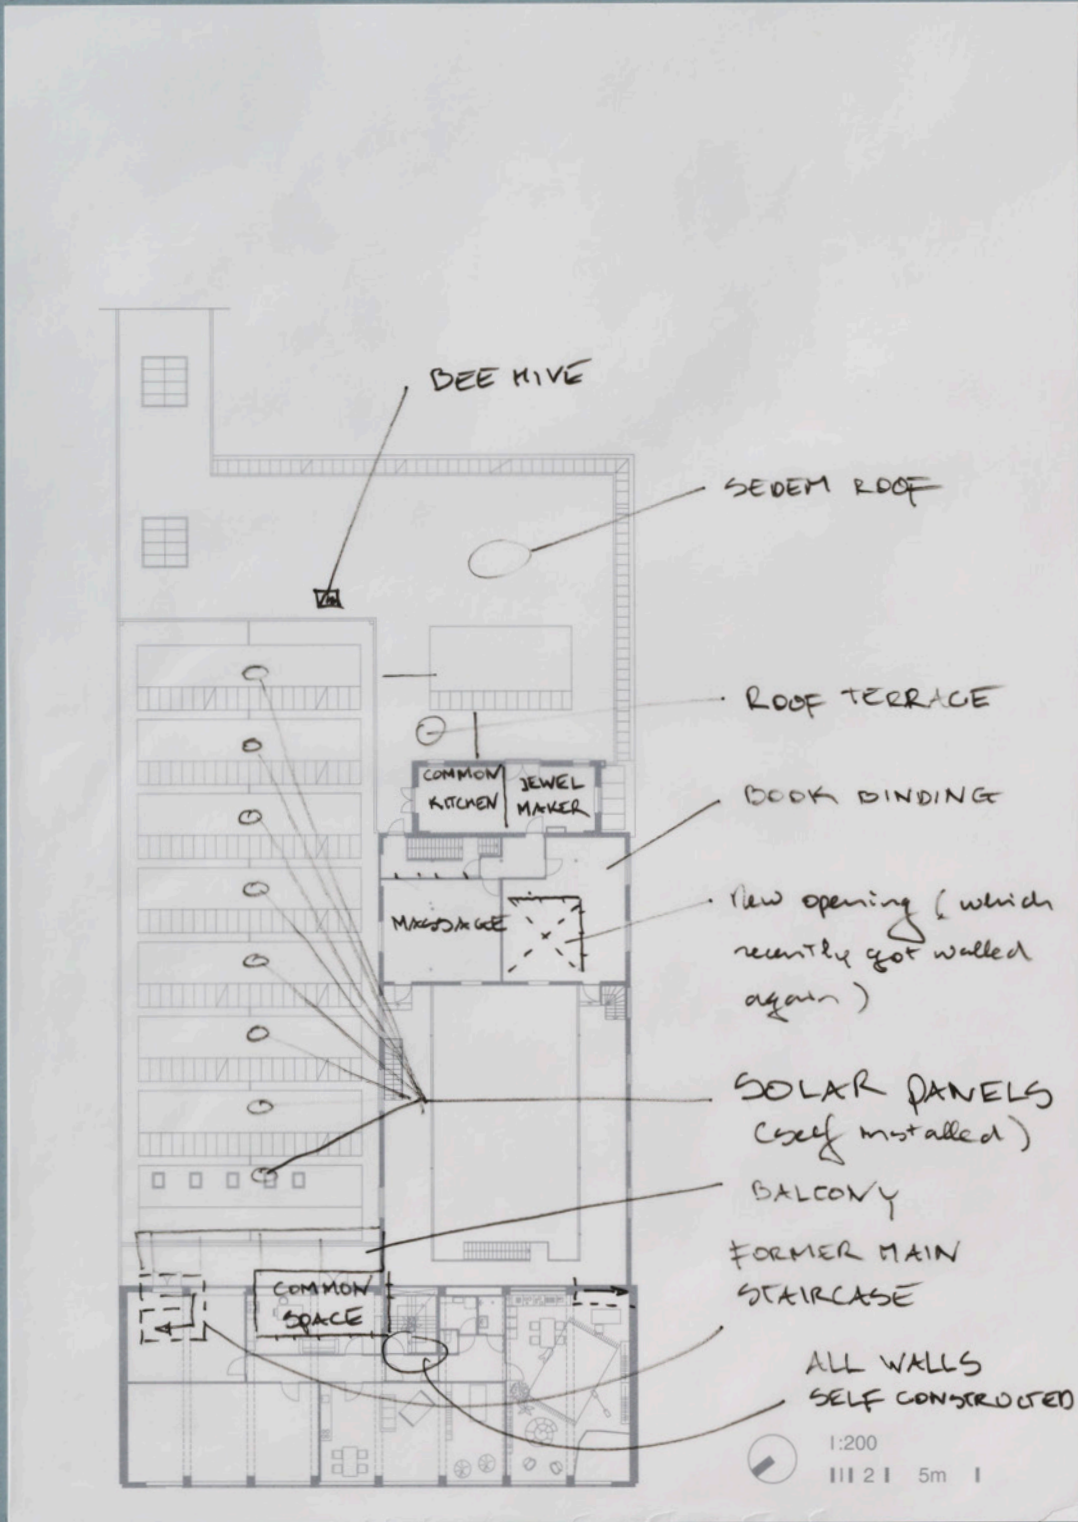 BEE HIVE
SEDEM ROOF
ROOF TERRACE
COMMON
KITCHEN
JEWEL
MAKER
BOOK BINDING
MASSAGE
New opening (which
recently got walled
again)
SOLAR PANELS
(self installed)
BALCONY
FORMER MAIN
STAIRCASE
COMMON
SPACE
ALL WALLS
SELF CONSTRUCTED
1:200
2 5m